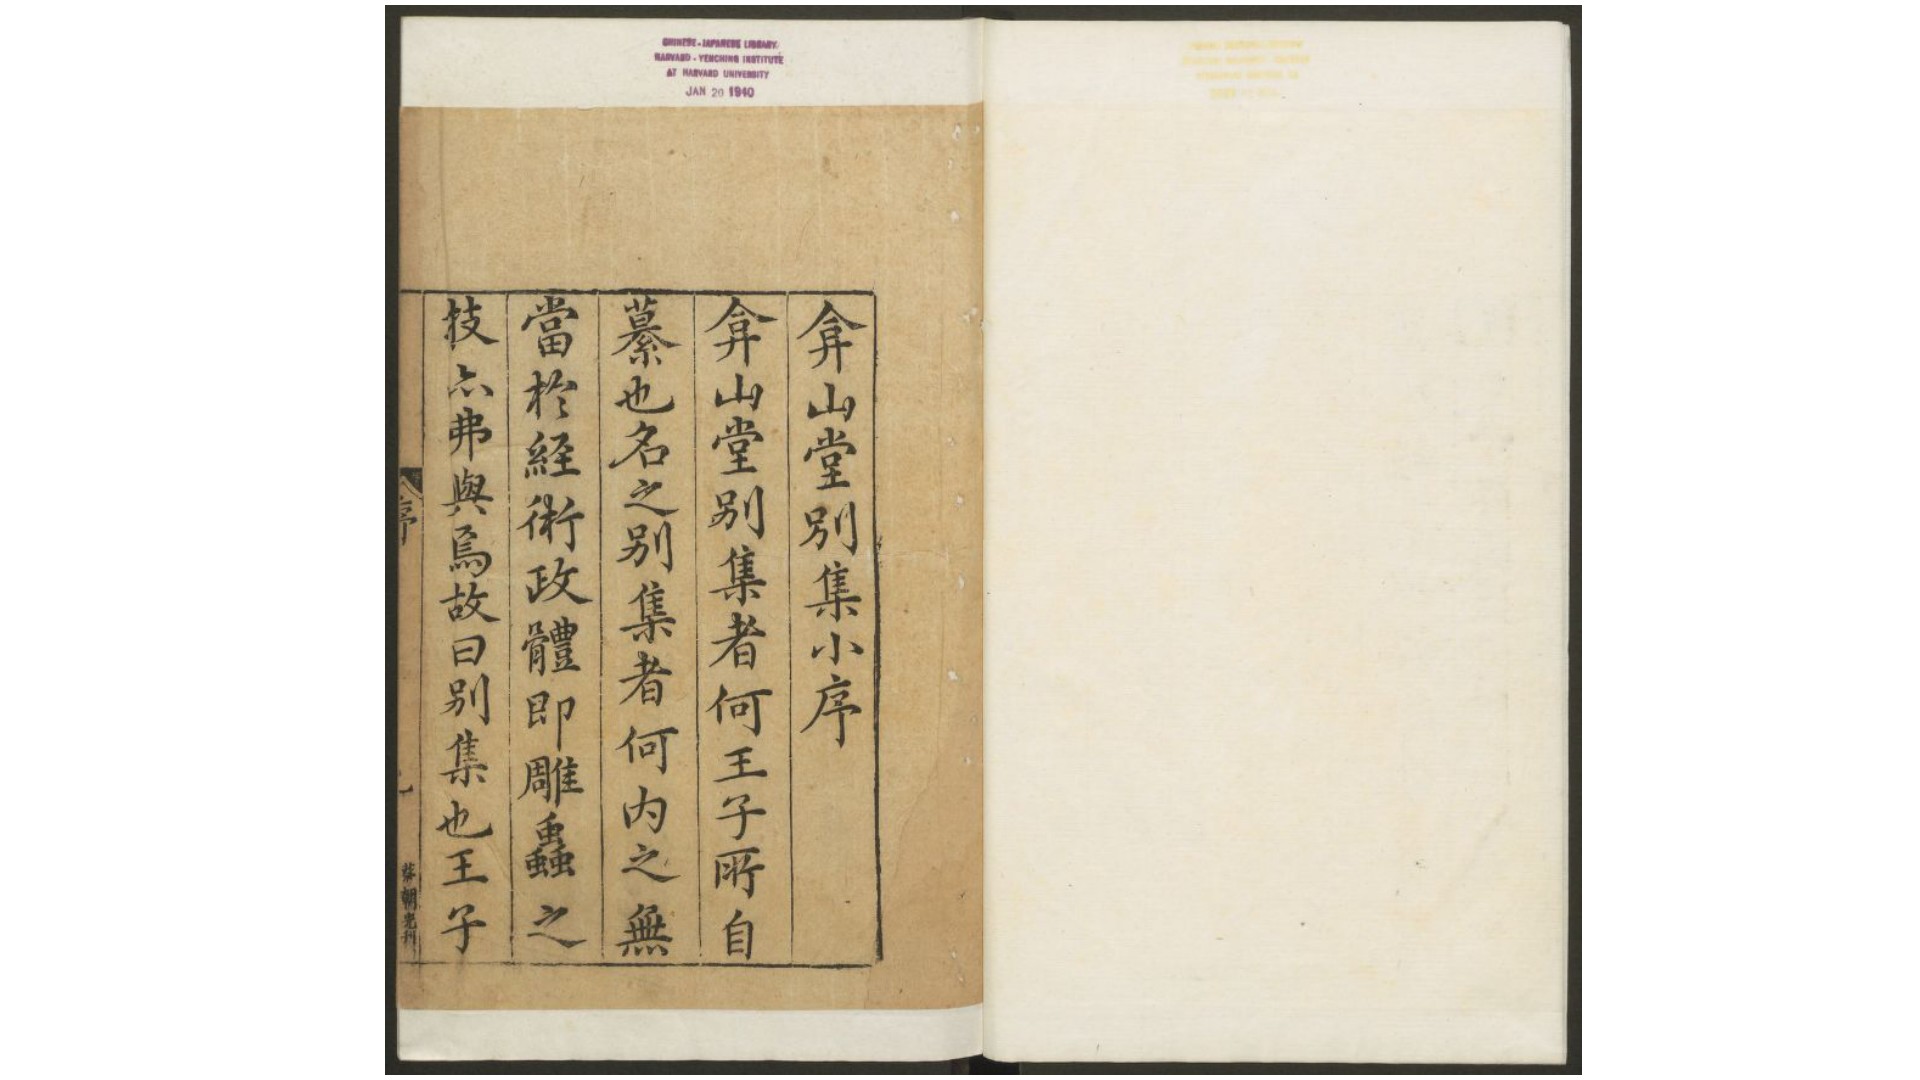 CHINESE-JAPANESE LIBRARY
HARVARD-YENCHING INSTITUTE
AT HARVARD UNIVERSITY
JAN 20 1940
弇山堂别集小序
弇山堂别集者何王子所自
纂也名之别集者何内之無
當於経術政體即雕蟲之
技亦弗與焉故曰别集也王子
序
一
蔡朝光刊